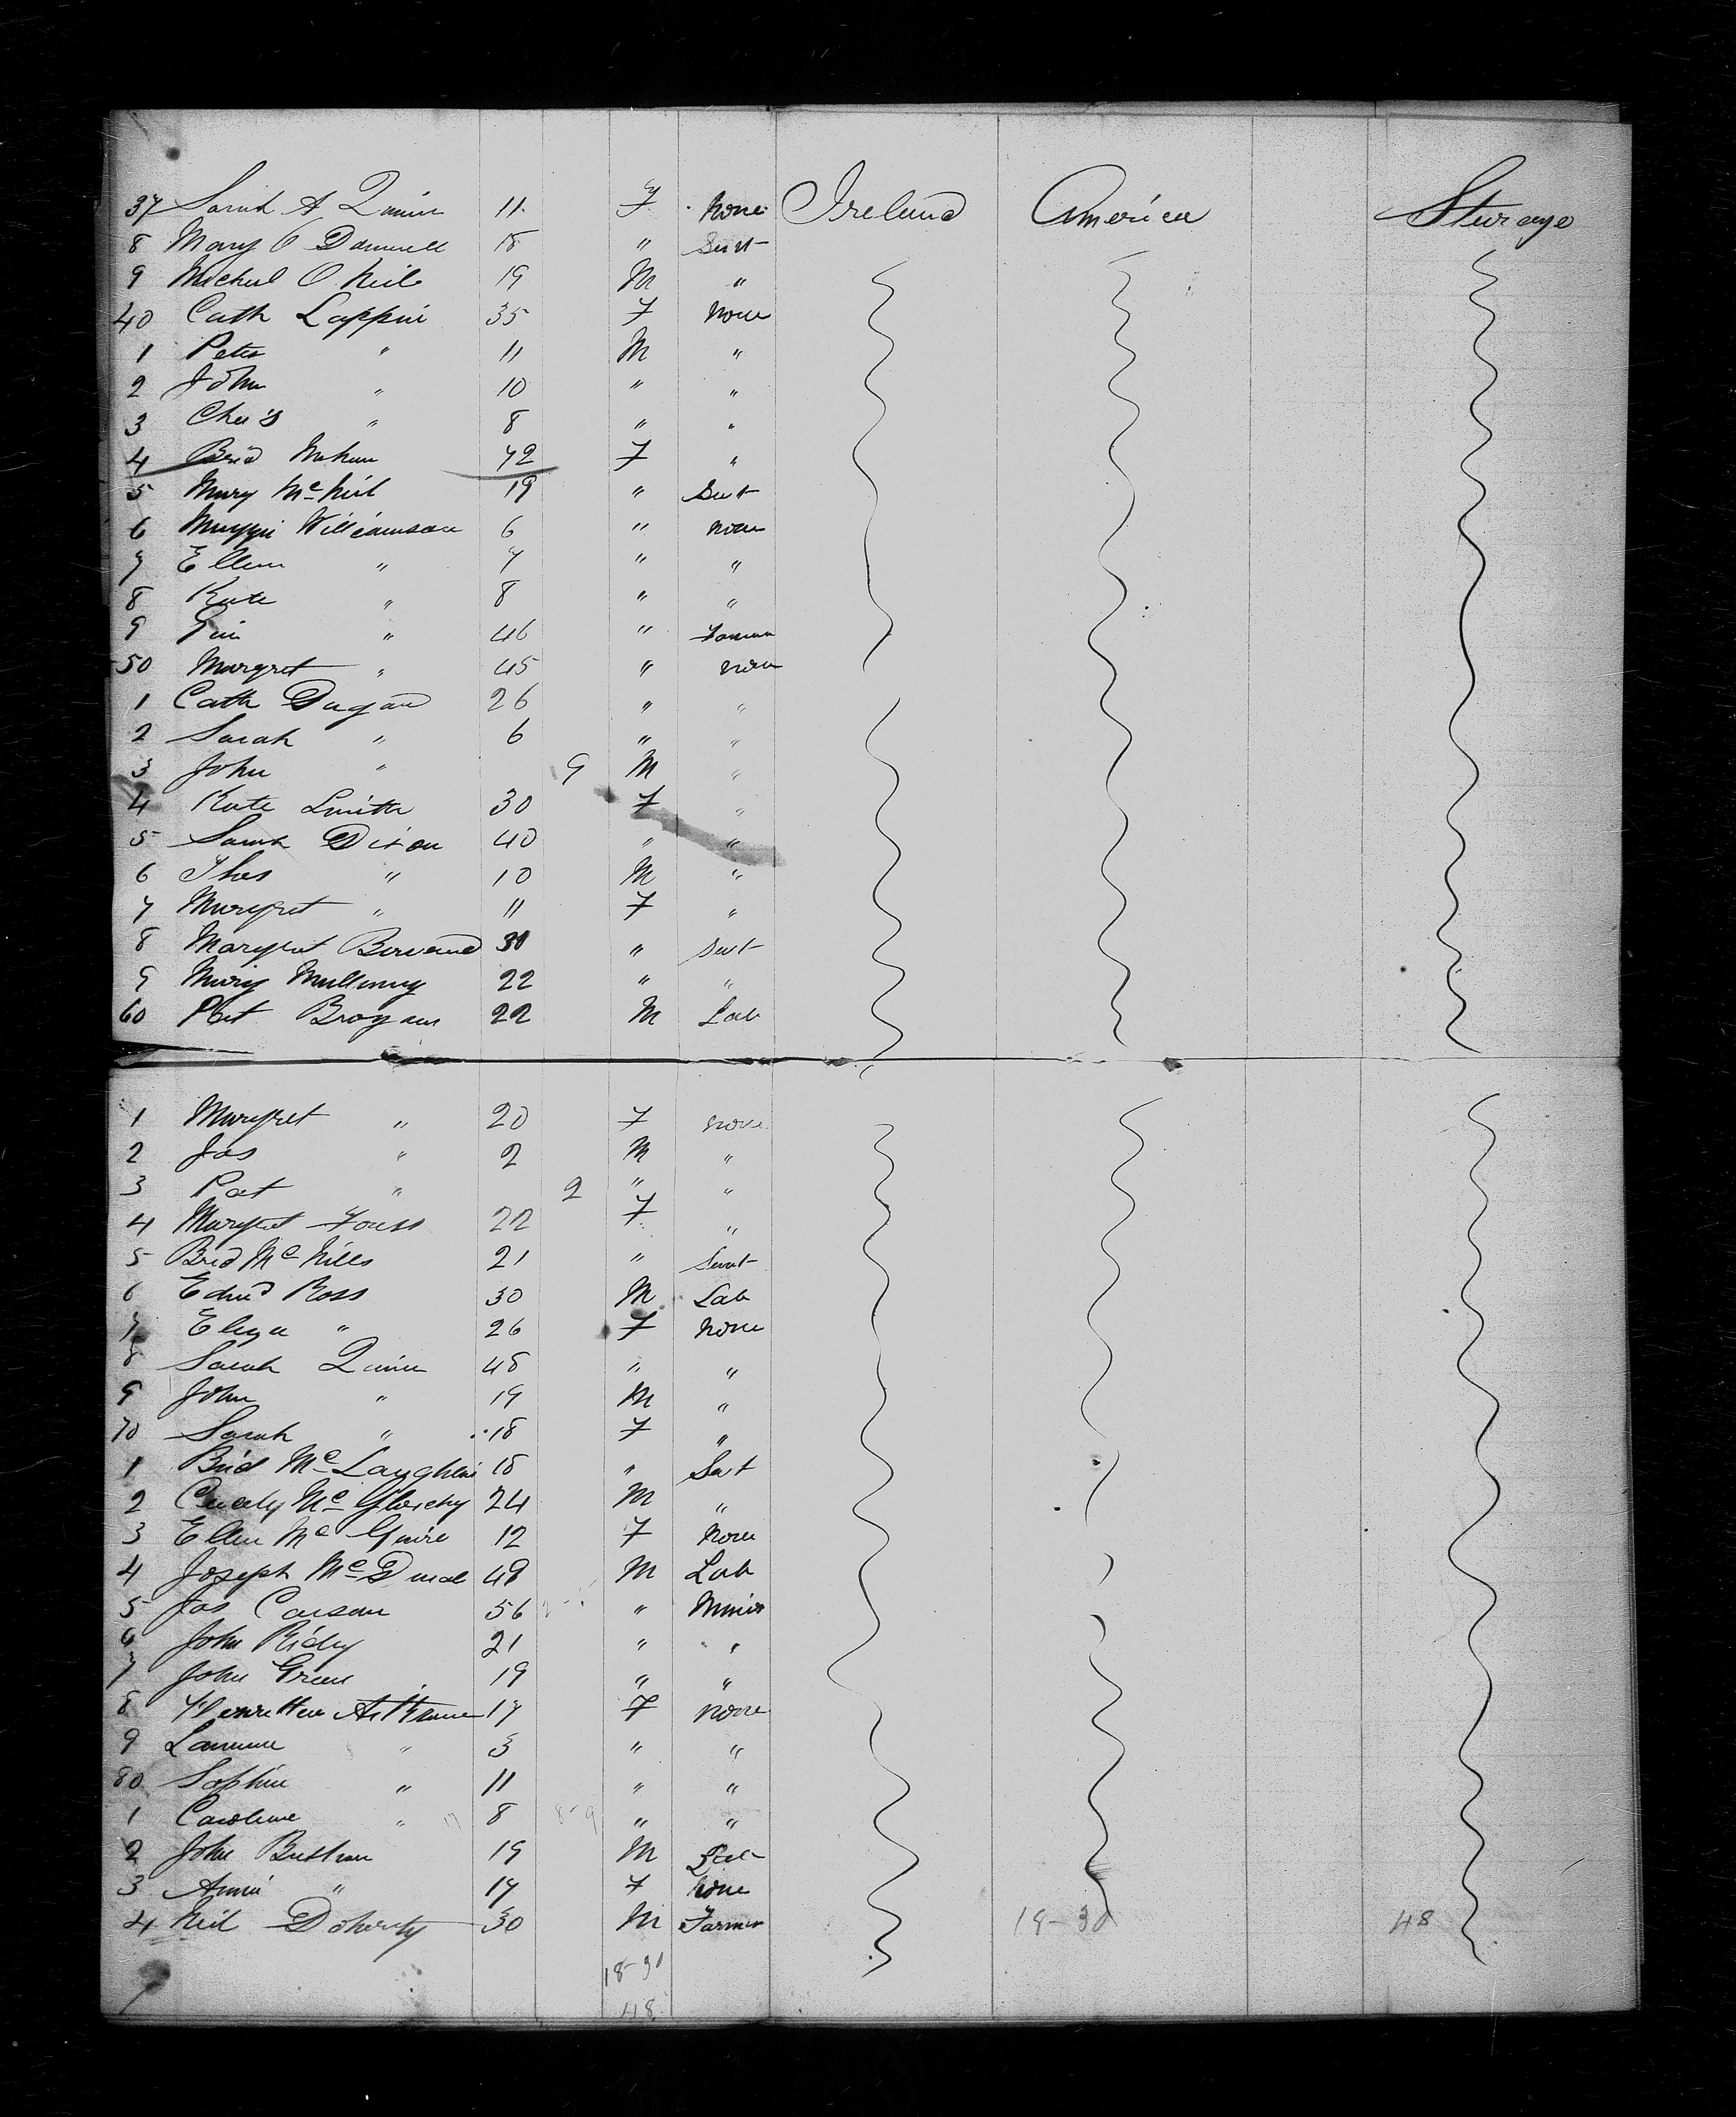 37 Sarah A Quinn 11 F None Ireland America Steerage
8 Mary O Donnell 18 " Servt
9 Micheal O Neil 19 M "
40 Cath Lappin 35 F None
1 Peter " 11 M "
2 John " 10 " "
3 Chas " 8 " "
4 Brid Mahon 72 F "
5 Mary McNeil 19 " Servt
6 Maggie Williamson 6 " None
7 Ellen " 7 " "
8 Kate " 8 " "
9 " 46 " Farmer
50 Margret " 45 " None
1 Cath Dugan 26 " "
2 Sarah " 6 " "
3 John " 9 M "
4 Kate Smith 30 F "
5 Sarah Dixon 40 " "
6 Thos " 10 M "
7 Margret " 11 F "
8 Margret 30 " Servt
9 Mary Mullanny 22 " "
60 Pat Brogan 22 M Lab
1 Margret " 20 F None
2 Jas " 2 M "
3 Pat " 2 " "
4 Margret 22 F "
5 Brid McNills 21 " Servt
6 Edwd Ross 30 M Lab
7 Eliza " 26 F None
8 Sarah Quinn 48 " "
9 John " 19 M "
70 Sarah " 18 F "
1 Brid McLaughlin 18 " Servt
2 24 M "
3 Ellen McGuire 12 F None
4 Joseph McDuid 48 M Lab
5 Jas Carson 56 " Miner
6 John Ridy 21 " "
7 John Green 19 " "
8 17 F None
9 " 3 " "
80 Sophia " 11 " "
1 Caroline " 8 " "
2 John 19 M Lab
3 Annie " 17 F None
4 Neil Doherty 30 M Farmer 18-30 48
18-30
48